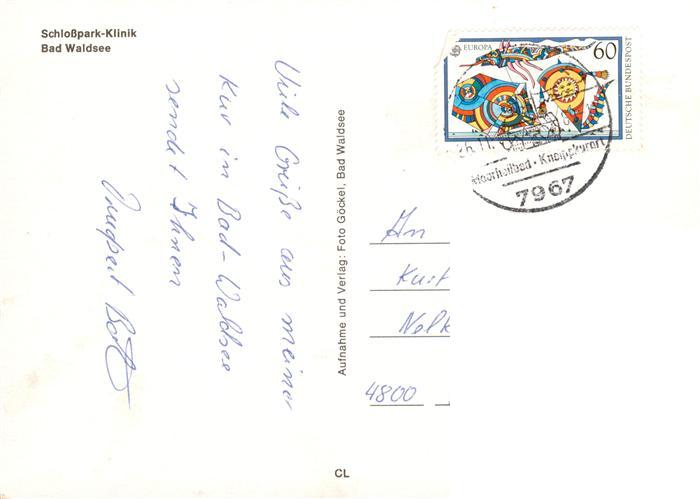 Schloßpark-Klinik
Bad Waldsee
Viele Grüße aus meiner
Kur in Bad-Waldsee
sendet Ihnen
Aufnahme und Verlag: Foto Göckel, Bad Waldsee
CL
EUROPA
60
DEUTSCHE BUNDESPOST
Moorheilbad · Kneippkurort
7967
An
Kurt
Nelk
4800